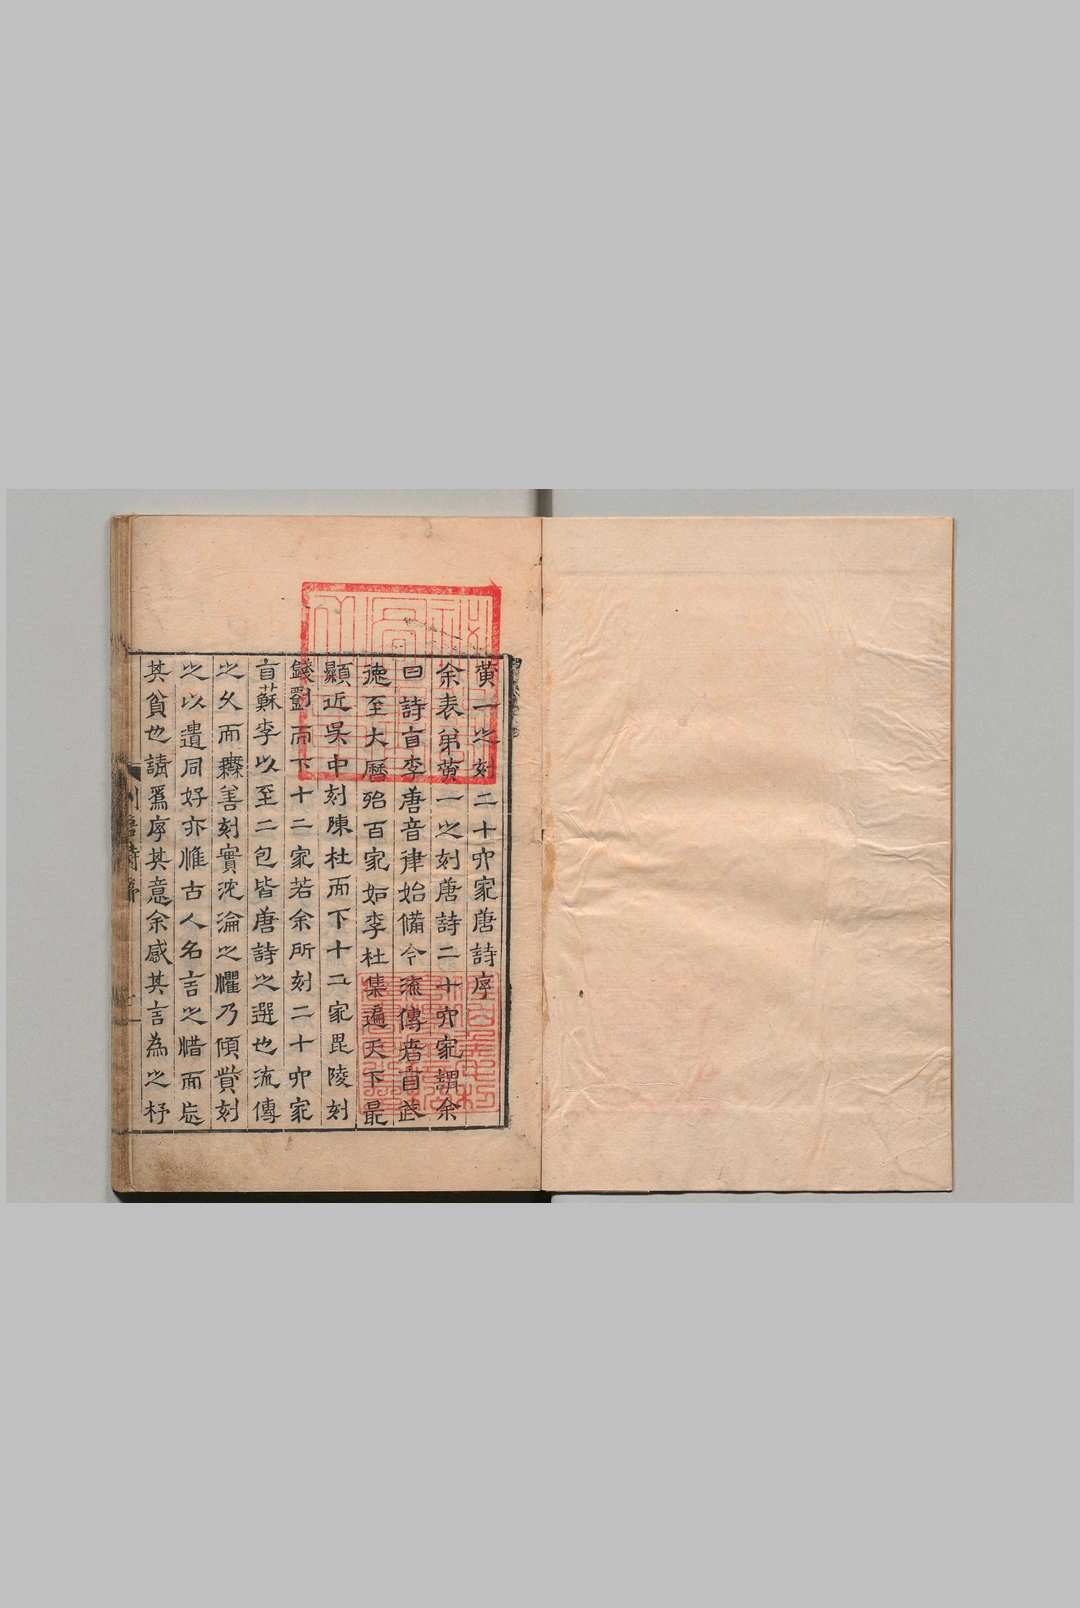 黄一之刻二十六家唐詩序
余表弟黄一之刻唐詩二十六家謂余
曰詩盲李唐音律始備今流傳者盲武
德至大曆殆百家如李杜集遍天下最
顯近吳中刻陳杜而下十二家毘陵刻
錢劉而下十二家若余所刻二十六家
盲蘇李以至二包皆唐詩之選也流傳
之久而鞿善刻實沈淪之懼乃傾貲刻
之以遺同好亦惟古人名言之惜而忘
其貧也請爲序其意余感其言為之杼
刻唐詩序